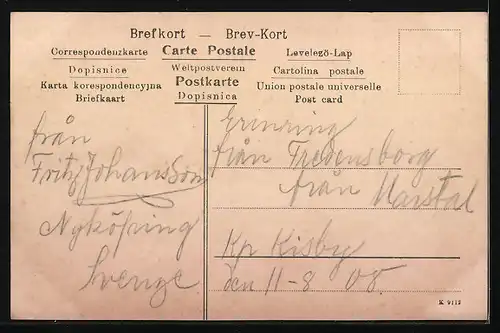 Brefkort — Brev-Kort
Correspondenzkarte Carte Postale Levelező-Lap
Dopisnice Weltpostverein Cartolina postale
Karta korespondencyjna Postkarte Union postale universelle
Briefkaart Dopisnica Post card
från
Fritz Johansson
Nyköping
Sverige
Erinring
från Fredensborg
från Marstal
Kp Kisby
den 11-8 08.
K 9113